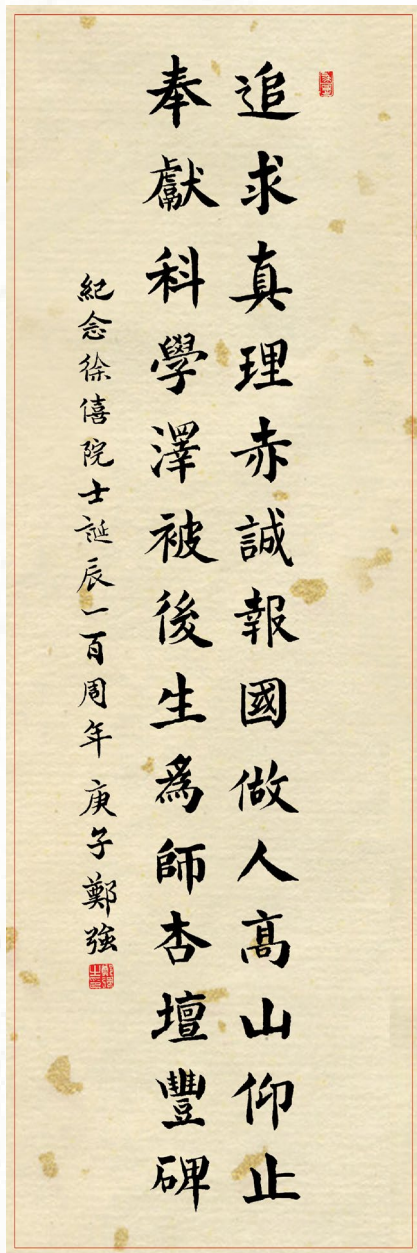 追求真理赤誠報國做人高山仰止
奉獻科學澤被後生為師杏壇豐碑
紀念徐僖院士誕辰一百周年 庚子鄭強